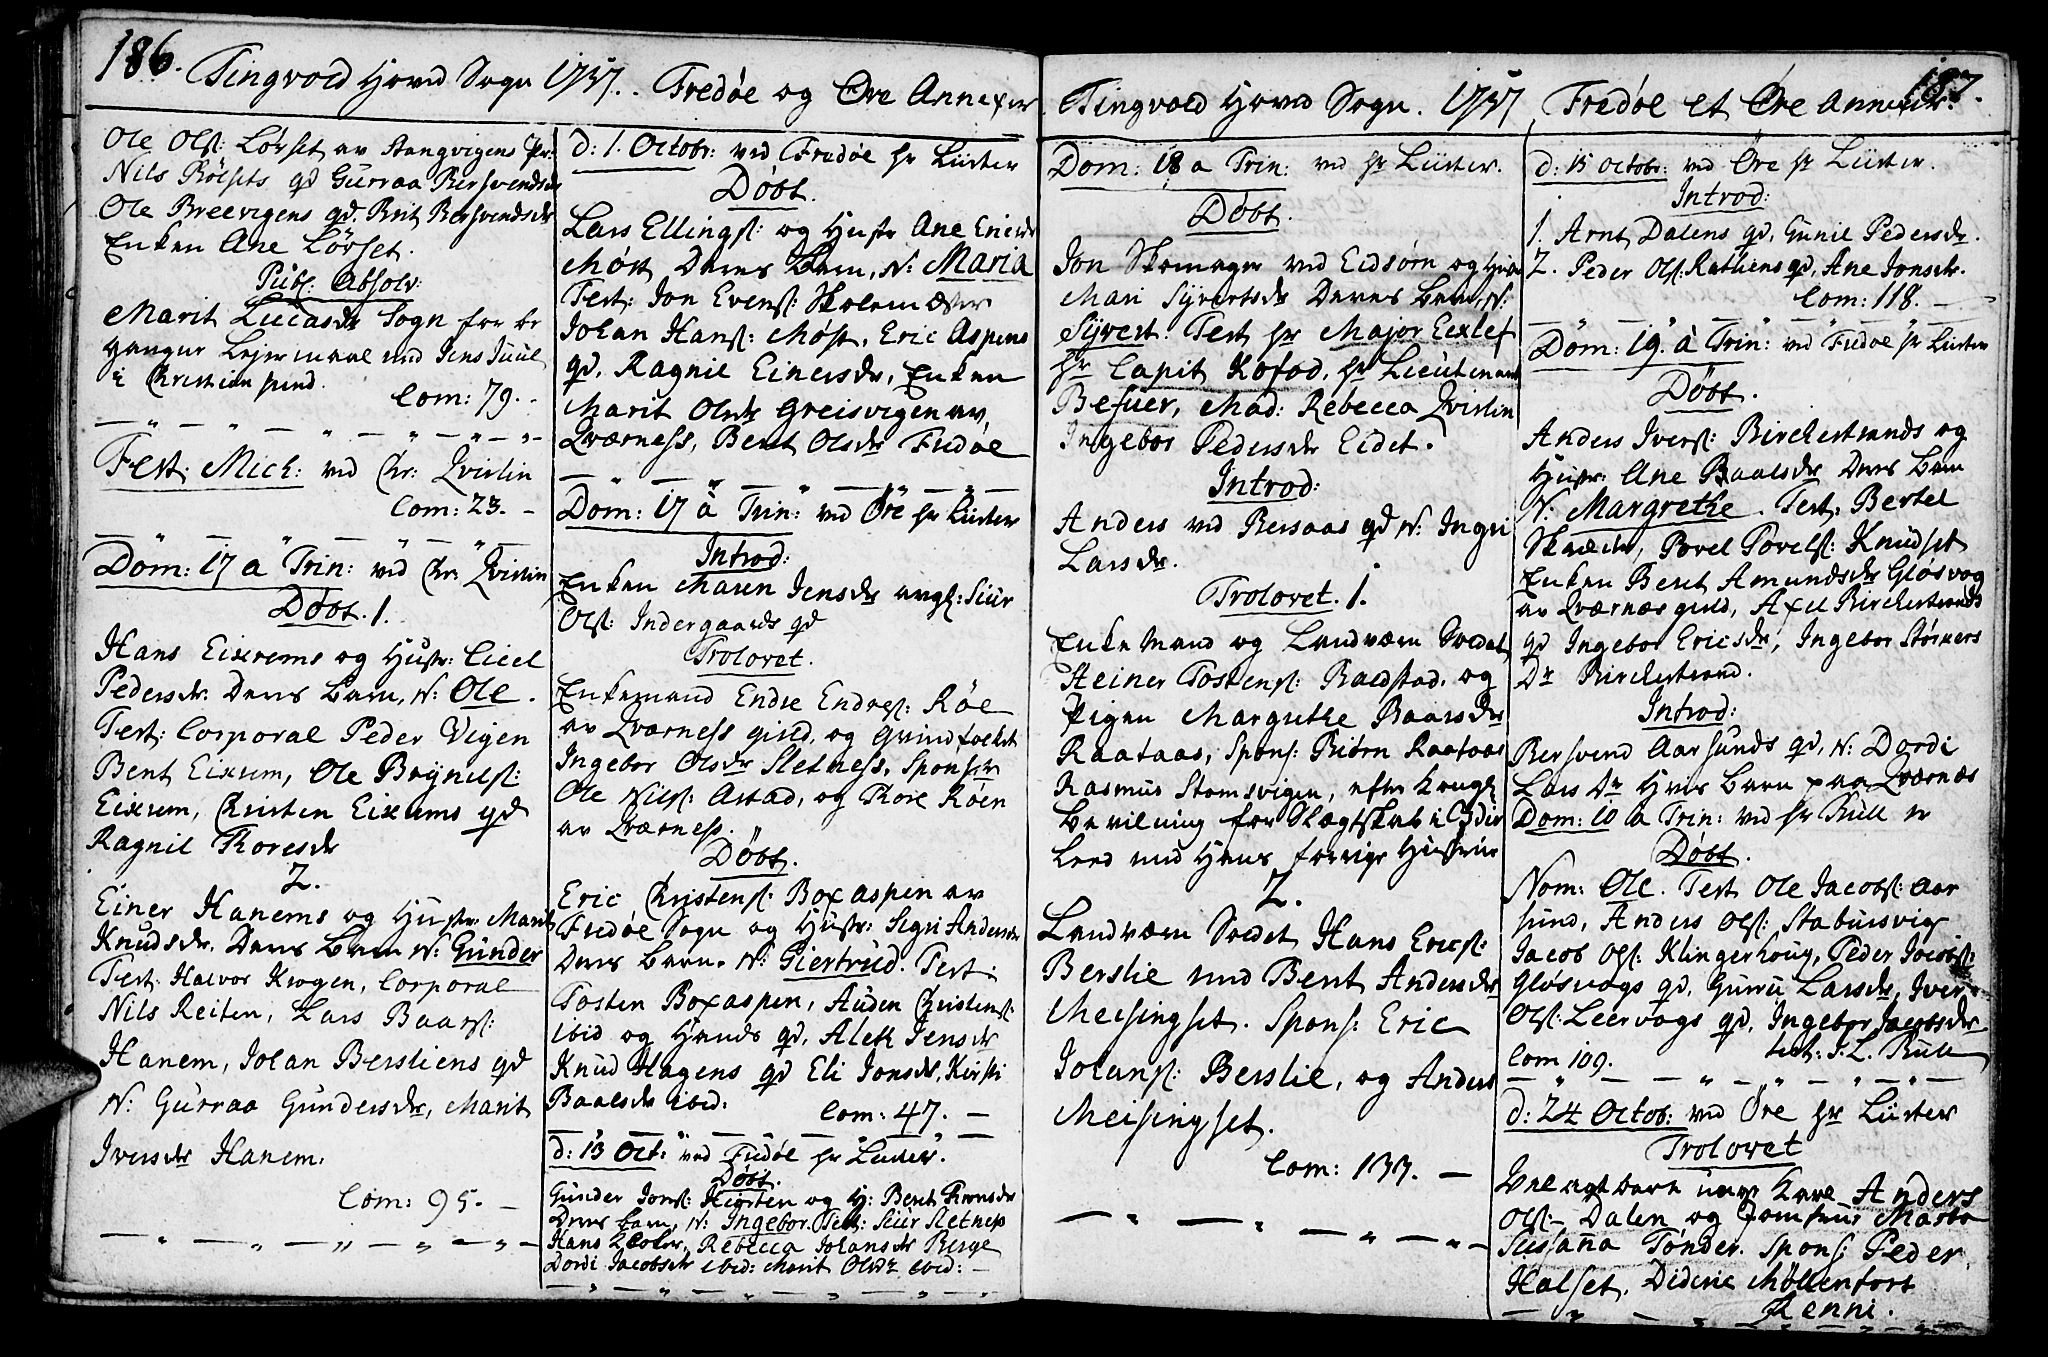 186. Tingvold Hoved Sogn 1757. Fredøe og Øre Annexer
Ole Olß: Lørset av Stangvigens Pr:
Nils Rølsets qd Gurraa Bersvendsdr
Ole Breevigens qd. Brit Bersvendsdr
Enken Ane Lørset.
Publ: Absolv:
Marit Lucasdr Sogn for be
gangne Lejermaal med Jens Juul
i Christiansund.
Com: 79.
Fest: Mich: ved Chr: Qvislin
Com: 23.
Dom: 17 a Trin: ved Chr: Qvislin
Døbt. 1.
Hans Eixrems og Hustr: Cicel
Pedersdr. Deres Barn, N: Ole.
Test: Corporal Peder Vigen
Bent Eixrem, Ole Brÿnilß:
Eixrem, Christen Eixrems qd
Ragnil Thoresdr
2.
Einer Hanems og Hustr. Marit
Knudsdr. Deres Barn N: Gunder
Test: Halvor Krogen, Corporal
Nils Reiten, Lars Baarß:
Hanem, Johan Bersliens qd
N: Gurraa Gundersdr, Marit
Iversdr Hanem:
Com: 95.
d: 1. Octobr: ved Fredøe hr Lüster
Døbt.
Lars Ellingß: og Hustr Ane Ericsdr
Møst Deres Barn, N: Maria
Test: Jon Evenß: Skolemæster
Johan Hanß: Møst, Eric Aspens
qd. Ragnil Einersdr, Enken
Marit Olsdr Greisvigen av
Qværness, Berit Olsdr Fredøe
Dom: 17 à Trin: ved Øre hr Lüster
Introd:
Enken Maren Jensdr avgl: Siur
Olß: Indergaards qd
Trolovet.
Enkemand Endre Endreß: Røe
av Qværness gield, og Qvindfolket
Ingebor Olsdr Sletness, Sponser
Ole Nilß: Astad, og Thore Røen
av Qværness.
Døbt.
Eric Christenß: Boxaspen av
Fredøe Sogn og Hustr: Sigri Andersdr
Deres Barn. N: Giertrud. Test:
Tosten Boxaspen, Auden Christenß:
ibid og Hands qd, Aleth Jensdr
Knud Hagens qd Eli Jonsdr, Kirsti
Baalsdr ibid:
Com: 47.
d: 13 Oct: ved Fredøe hr Lüster.
Døbt.
Gunder Jonß: Hiorten og H: Beret Thoresdr
Deres barn, N: Ingebor. Test: Siur Sletness
Hans Kloker, Rebecca Johansdr Berge
Dordi Jacobsdr ibid: Marit Olsdr ibid:
Tingvold Hoved Sogn. 1757 Fredøe et Øre Annexer. 187.
Dom: 18 a Trin: ved hr Lüster.
Døbt.
Jon Skomager ved Eidsørn og Hustr
Mari Sÿvertsdr Deres barn, N:
Sÿvert. Test hr Major Eexlef
hr Capit Kofod, hr Lieutenant
Befuer, Mad: Rebecca Qvislin
Ingebor Pedersdr Eidet.
Introd:
Anders ved Bersaas qd N: Ingri
Larsdr.
Trolovet. 1.
Enke Mand og Landværn Soldat
Heiner Tostenß: Raldstad. og
Pigen Margrethe Baarsdr
Raataas, Spons: Biørn Raataas
Rasmus Stomsvigen, efter Kongl
bevilning for Slægtskab i
leed med Hans forrige Hustrue
2.
Landværn Soldat Hans Ericß:
Berslie med Berit Andersdr
Meisingset. Spons: Eric
Johanß: Berslie, og Anders
Meisingset.
Com: 133.
d: 15 Octobr: ved Øre hr Lüster.
Introd:
1. Arnt Dalens qd. Gunil Pedersdr.
2. Peder Olß: Rathiens qd, Ane Jonsdr.
Com: 118.
Dom: 19. à Trin: ved Fredøe hr Lüster
Døbt.
Anders Iverß: Birchestrands og
Hustr: Ane Baalsdr Deres barn
N: Margrethe. Test: Bertel
Skræder, Povel Povelß: Knudset
Enken Beret Amundsdr Gløsvog
av Qværnæs gield, Axel Birchestrands
qd Ingebor Ericsdr, Ingebor Størkers
Dr Birchestrand.
Introd:
Bersvend Aarsunds qd, N: Dordi
Lars Dr Hvis barn paa Qværnæs
Dom: 10 a Trin: ved hr Bull er
Døbt.
Nom: Ole. Test Ole Jacobß: Aar
sund, Anders Olß: Stabursvig
Jacob Olß: Klingerhoug, Peder Jacobß:
Gløsvogs qd, Guru Larsdr, Iver
Olß: Leervogs qd, Ingebor Jacobsdr
Com 109. test: J. L. Bull
d: 24 Octob: ved Øre hr Lüster
Trolovet
Vel agtbare unge Karl Anders
Olß: Dalen og Jomfrue Marta
Susanna Tønder. Spons: Peder
Halset. Dideric Møllenfort
Renni.